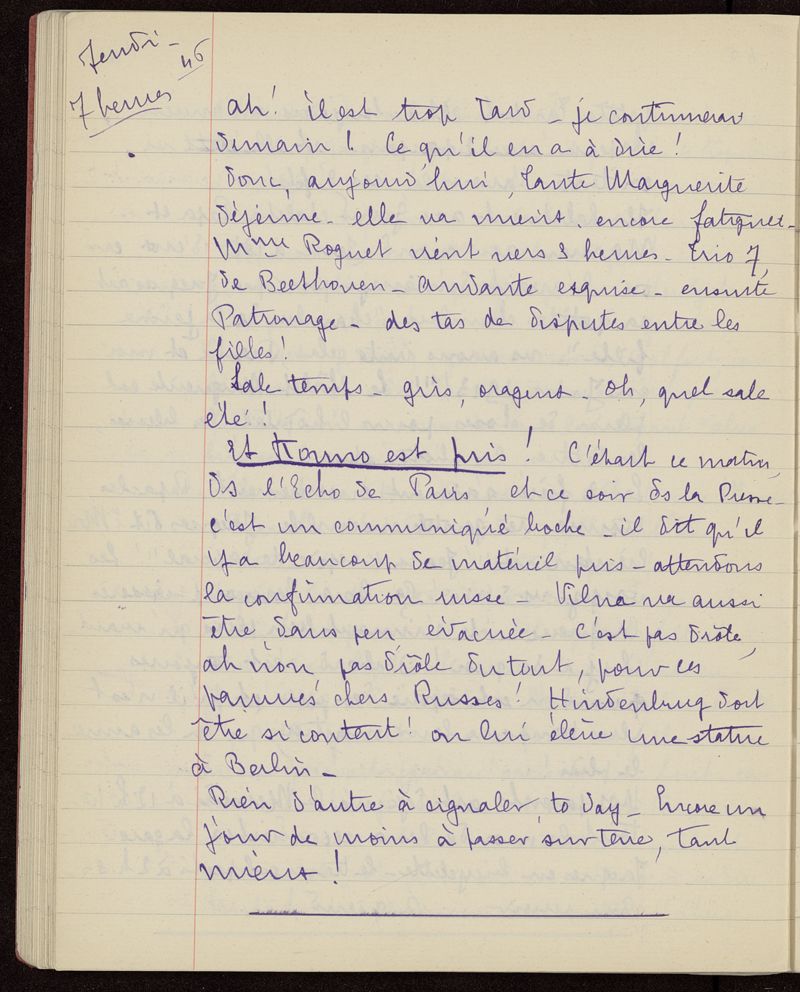 Jeudi -
45
7 heures
ah! il est trop tard - je continuerai
demain! Ce qu'il en a à dire!
donc, aujourd'hui, tante Marguerite
déjeune - elle va mieux. encore fatiguée -
Mme Roguet vient vers 3 heures - Trio 7,
de Beethoven - andante exquise - ensuite
Patronage - des tas de disputes entre les
filles!
Sale temps - gris, orageux - Oh, quel sale
été!
Et Kowno est pris! C'était ce matin,
ds l'Echo de Paris et ce soir ds la Presse -
c'est un communiqué boche - il dit qu'il
y a beaucoup de matériel pris - attendons
la confirmation russe - Vilna va aussi
être, dans peu, évacuée - C'est pas drôle,
ah non, pas drôle du tout, pour ces
pauvres chers Russes! Hindenbrug doit
être si content! on lui élève une statue
à Berlin -
Rien d'autre à signaler, to day - Encore un
jour de moins à passer sur terre, tant
mieux!